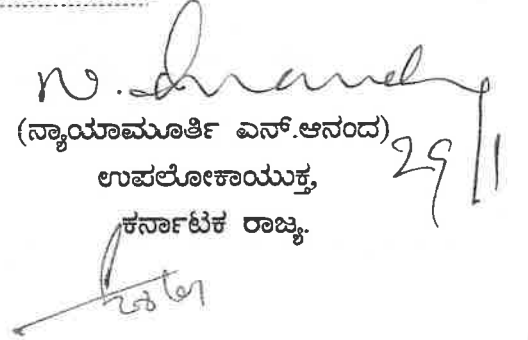 N. Anand
(ನ್ಯಾಯಾಮೂರ್ತಿ ಎನ್.ಆನಂದ)
29/1
ಉಪಲೋಕಾಯುಕ್ತ,
ಕರ್ನಾಟಕ ರಾಜ್ಯ.